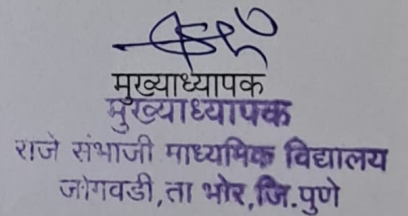 मुख्याध्यापक
मुख्याध्यापक
राजे संभाजी माध्यमिक विद्यालय
जोगवडी,ता भोर,जि.पुणे